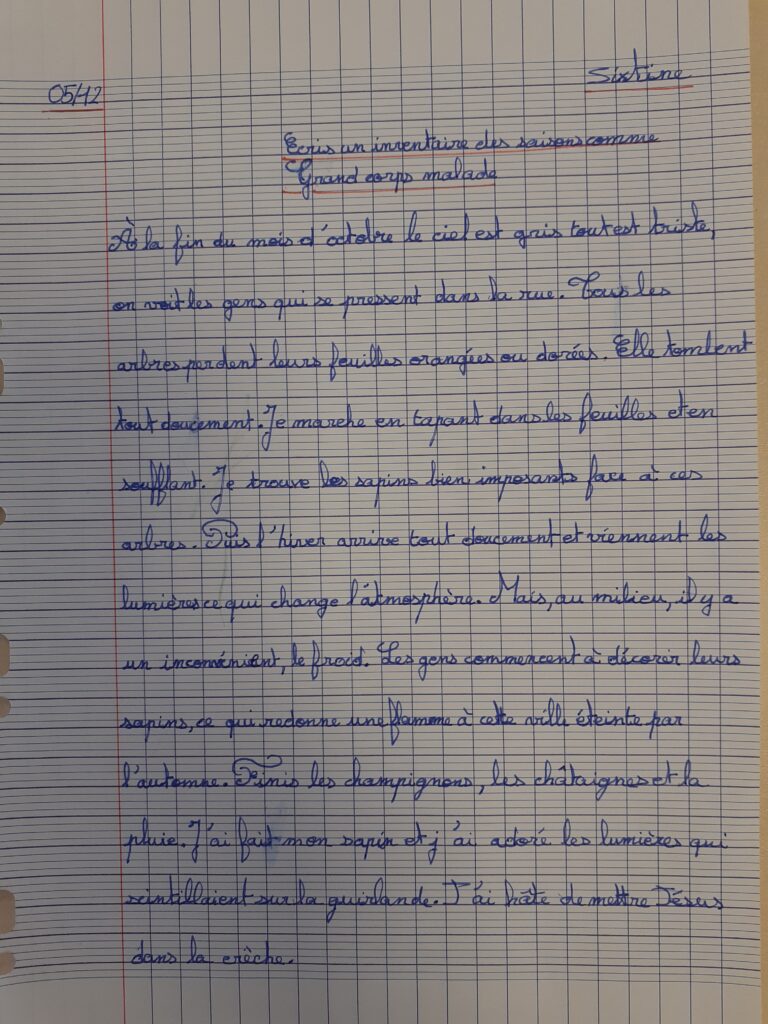 Sixtine
05/12
Ecris un inventaire des saisons comme
Grand corps malade
À la fin du mois d'octobre le ciel est gris tout est triste,
on voit les gens qui se pressent dans la rue. Tous les
arbres perdent leurs feuilles orangées ou dorées. Elle tombent
tout doucement. Je marche en tapant dans les feuilles et en
soufflant. Je trouve les sapins bien imposants face à ces
arbres. Puis l'hiver arrive tout doucement et viennent les
lumières ce qui change l'âtmosphère. Mais, au milieu, il y a
un inconvénient, le froid. Les gens commencent à décorer leurs
sapins, ce qui redonne une flamme à cette ville éteinte par
l'automne. Finis les champignons, les châtaignes et la
pluie. J'ai fait mon sapin et j'ai adoré les lumières qui
scintillaient sur la guirlande. J'ai hâte de mettre Jésus
dans la crèche.